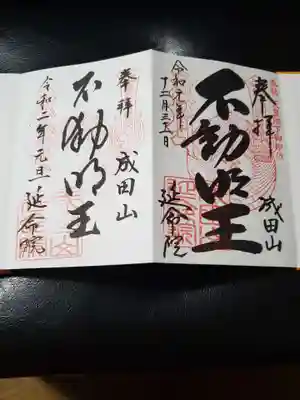 奉拝
成田山
不動明王
令和元年
十二月三十一日
延命院
奉拝
成田山
不動明王
令和二年元旦
延命院